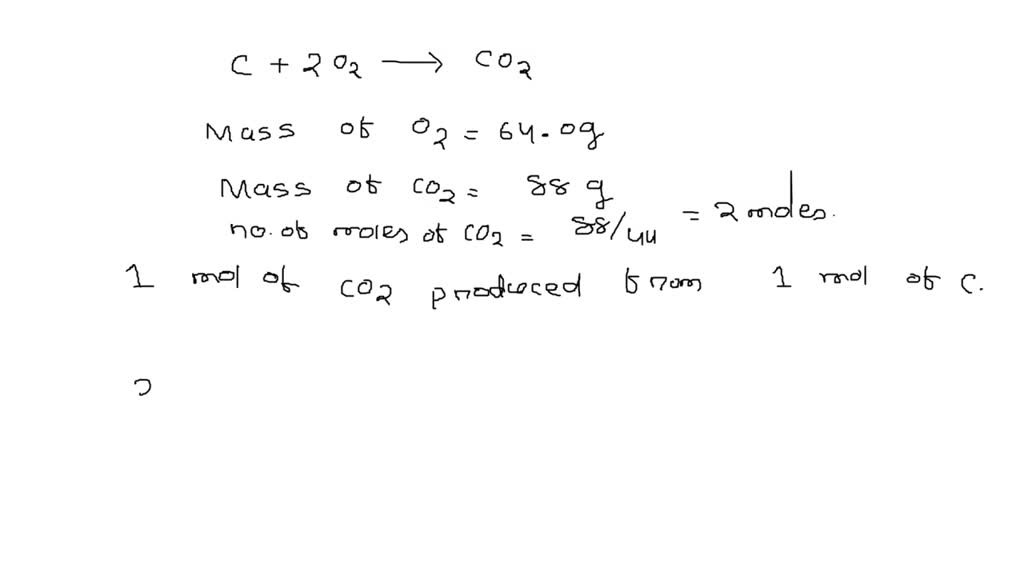 C + 2O₂ → CO₂
Mass of O₂ = 64.0g
Mass of CO₂ = 88 g
no. of moles of CO₂ = 88/44 = 2 moles.
1 mol of CO₂ produced from 1 mol of C.
2